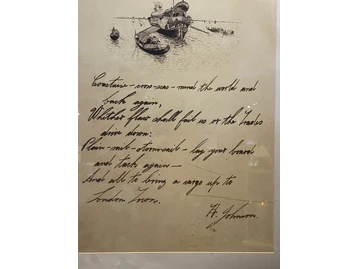 Coastwise - cross-seas - round the world and
back again,
Whither flaw shall fail us or the Trades
drive down:
Plain-sail - storm-sail - lay your board
and tack again -
And all to bring a cargo up to
London Town.
H. Johnson